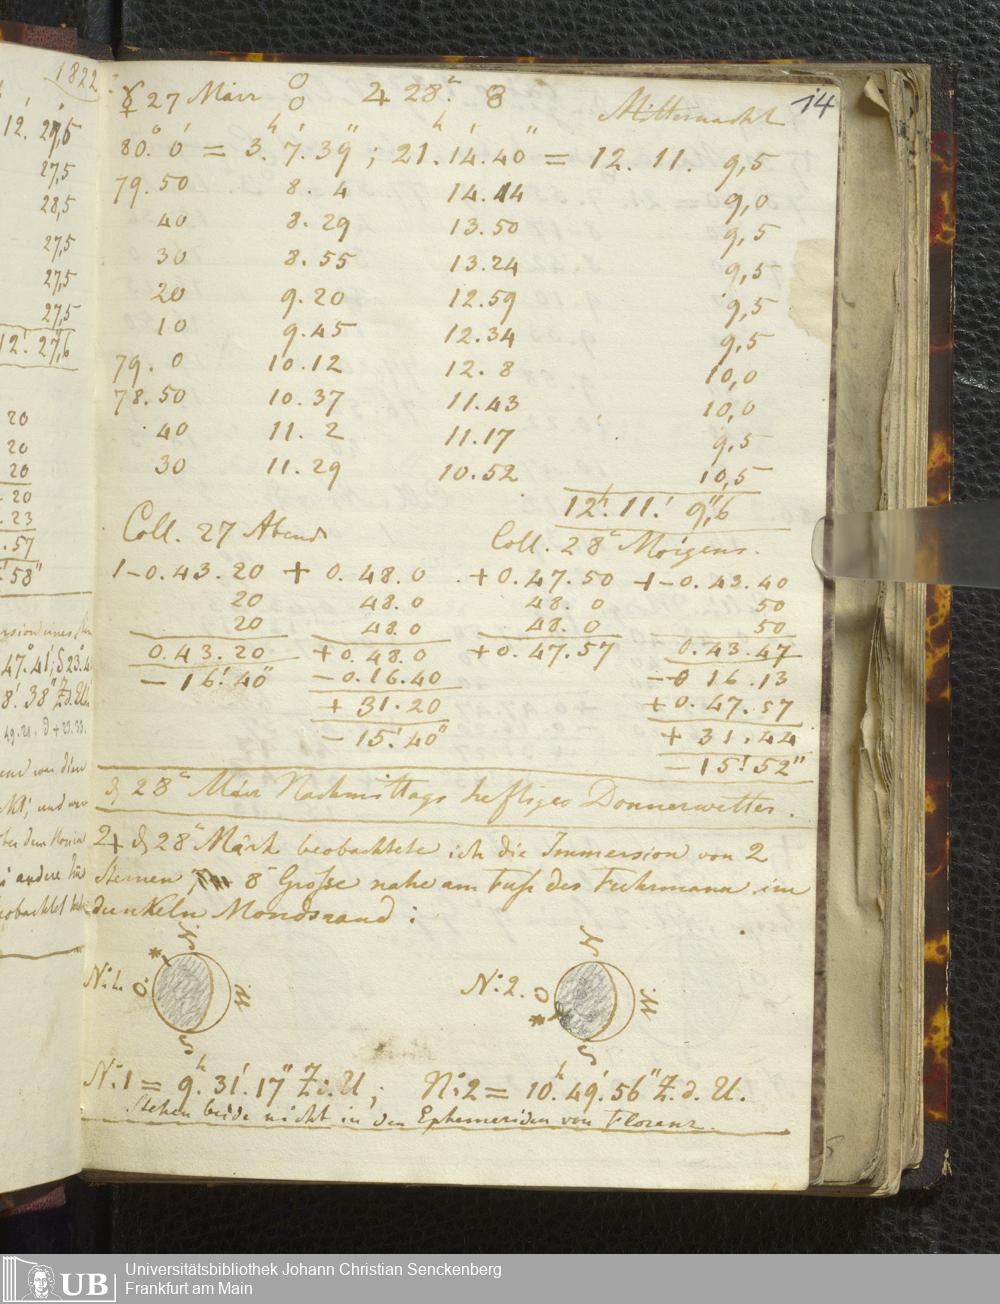 1822
12. 27,5
27,5
28,5
27,5
27,5
27,5
12! 27,6
20
20
20
20
. 23
. 57
58"
14
☿ 27 März ☍ ♃ 28.ᵗ 8 Mitternacht
80.° 0' = 3.ʰ 7.' 39"; 21.ʰ 14.' 40" = 12. 11. 9,5
79. 50 8. 4 14. 14 9,0
40 8. 29 13. 50 9,5
30 8. 55 13. 24 9,5
20 9. 20 12. 59 9,5
10 9. 45 12. 34 9,5
79. 0 10. 12 12. 8 10,0
78. 50 10. 37 11. 43 10,0
40 11. 2 11. 17 9,5
30 11. 29 10. 52 10,5
12ʰ. 11.' 9",6
Coll. 27 Abends Coll. 28ᵗ Morgens.
1-0. 43. 20 + 0. 48. 0 + 0. 47. 50 +-0. 43. 40
20 48. 0 48. 0 50
20 48. 0 48. 0 50
0. 43. 20 + 0. 48. 0 + 0. 47. 57 0. 43. 47
- 16.' 40" - 0. 16. 40 - 0 16. 13
+ 31. 20 + 0. 47. 57
- 15.' 40" + 31. 44
- 15.' 52"
28ᵗ März Nachmittags heftiges Donnerwetter.
♃ 28ᵗ März beobachtete ich die Immersion von 2
Sternen 8ʳ Große nahe am Fuß des Fuhrmann im
dunkeln Mondsrand:
N
N:1. O W
S
N
N:2. O W
S
N:1 = 9.ʰ 31.' 17" Z.d.U; N:2 = 10.ʰ 49.' 56" Z.d.U.
stehen beide nicht in den Ephemeriden von Florenz.
UB Universitätsbibliothek Johann Christian Senckenberg
Frankfurt am Main